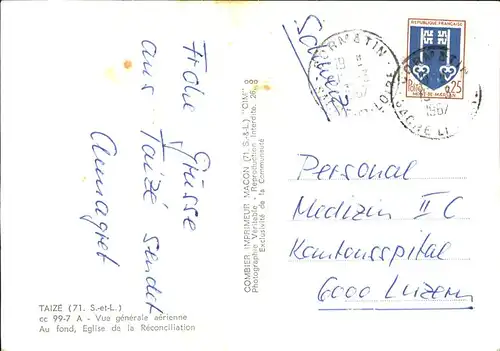 Frohe Grüsse
aus Taizé sendet
Annagret
TAIZE (71. S.-et-L.)
cc 99-7 A - Vue générale aérienne
Au fond, Eglise de la Réconciliation
COMBIER IMPRIMEUR MACON (71. S.-&-L.) "CIM"
Photographie Véritable - Reproduction Interdite.
Exclusivité de la Communauté
Schweiz
CORMATIN
1967
REPUBLIQUE FRANÇAISE
Postes 0,25
MONT-DE-MARSAN
CORMATIN
1967
SAONE
Personal
Medizin II C
Kantonsspital
6000 Luzern